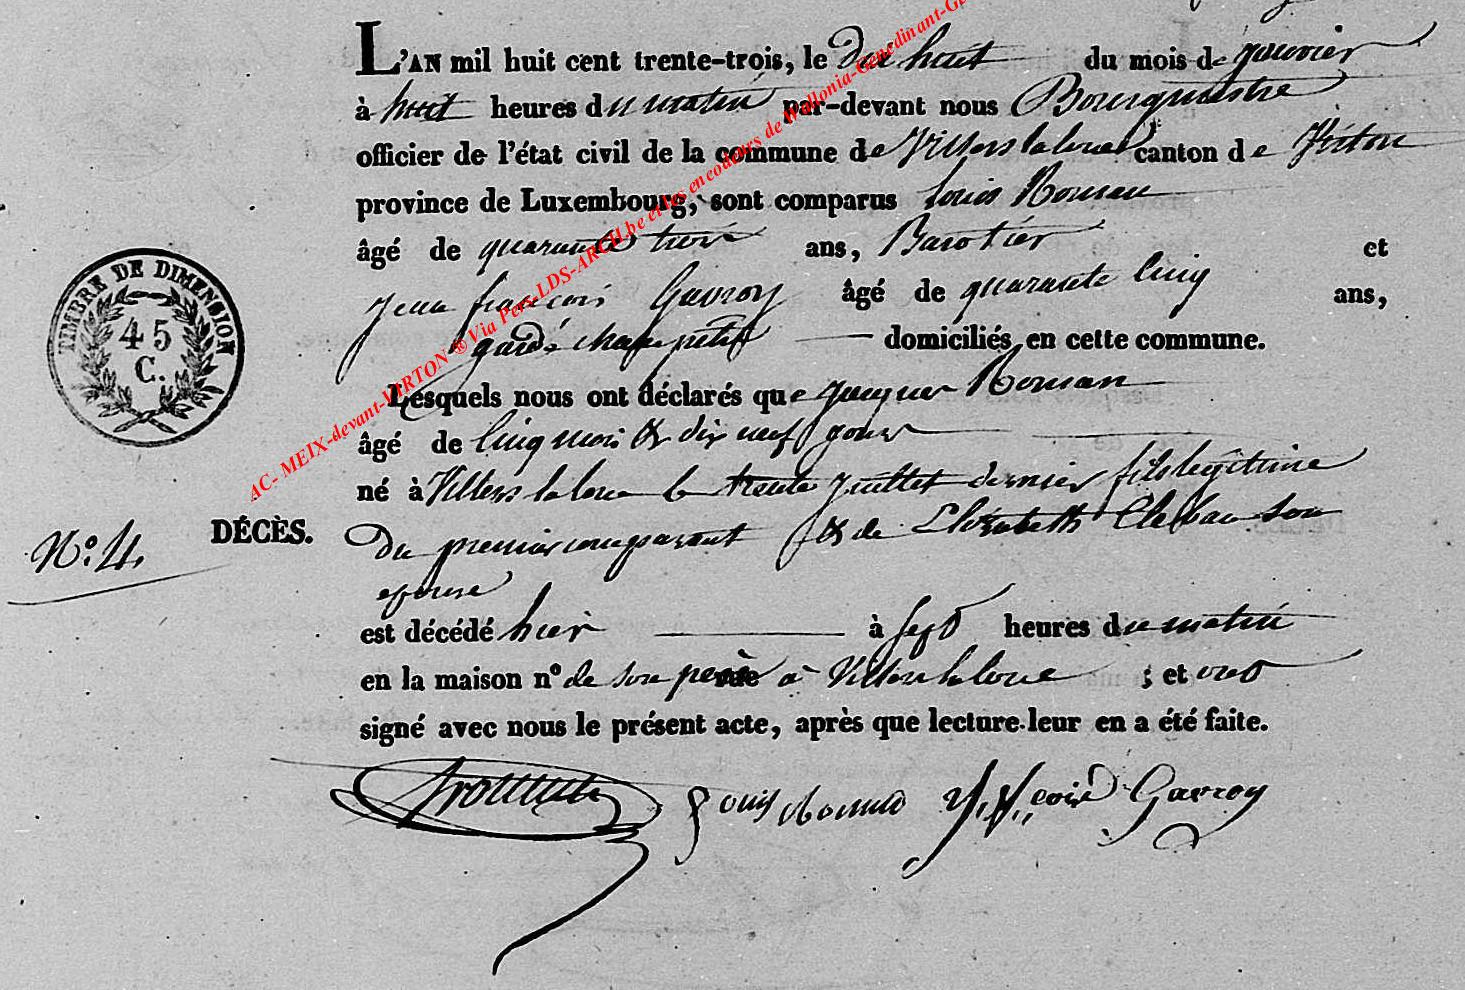 L'AN mil huit cent trente-trois, le dix huit du mois de janvier
à huit heures du matin par-devant nous Bourgmestre
officier de l'état civil de la commune de Villers la loue canton de Virton
province de Luxembourg, sont comparus Louis Roman
âgé de quarante trois ans, Barotier et
Jean françois Gavroy âgé de quarante cinq ans,
garde champetre domiciliés en cette commune.
Lesquels nous ont déclarés que Jacques Roman
âgé de cinq mois & dix neuf jours
né à Villers la loue le trente juillet dernier fils légitime
DÉCÈS.
N.º 4.
du premier comparant & de Elizabeth son
epouse
est décédé hier à sept heures du matin
en la maison nº de son pere à Villers la loue ; et ont
signé avec nous le présent acte, après que lecture leur en a été faite.
Louis Roman J. f. çois Gavroy
TIMBRE DE DIMENSION
45
C.
AC- MEIX-devant-VIRTON ® Via Pers-LDS-ARCH.be et les encodeurs de Wallonia-Genedinant-G